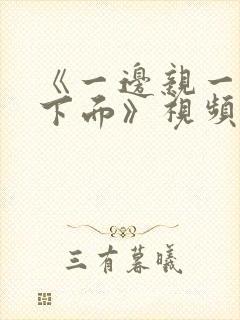 《一邊親一
下而》視頻
三有暮曦